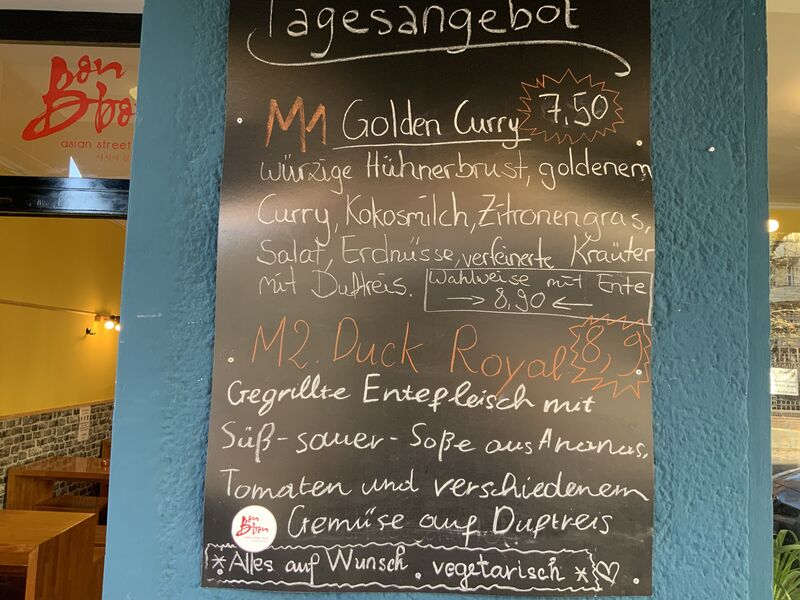 Tagesangebot
Bon
Bon
asian street
M1 Golden Curry 7,50
würzige Hühnerbrust, goldenem
Curry, Kokosmilch, Zitronengras,
Salat, Erdnüsse, verfeinerte Kräuter
mit Duftreis.
Wahlweise mit Ente
→ 8,90 ←
M2. Duck Royal 8,9
Gegrillte Entefleisch mit
Süß-sauer-Soße aus Ananas,
Tomaten und verschiedenem
Gemüse auf Duftreis
Bon
Bon
*Alles auf Wunsch. vegetarisch * ♡